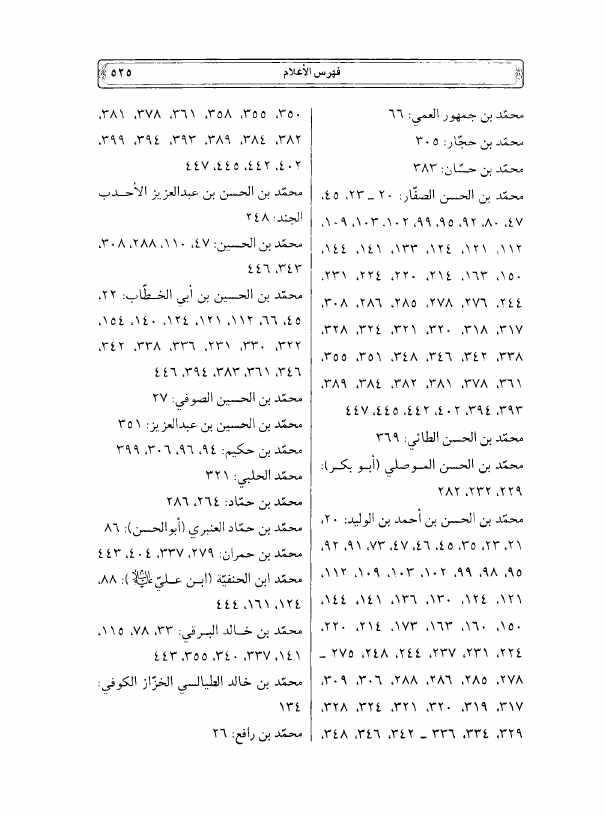 فهرس الأعلام
٥٢٥
محمّد بن جمهور العمي: ٦٦
محمّد بن حجّار: ٣٠٥
محمّد بن حسّان: ٣٨٣
محمّد بن الحسن الصفّار: ٢٠ ـ ٢٣، ٤٥،
٤٧، ٨٠، ٩٢، ٩٥، ٩٩، ١٠٢، ١٠٣، ١٠٩،
١١٢، ١٢١، ١٢٤، ١٣٣، ١٤١، ١٤٤،
١٥٠، ١٦٣، ٢١٤، ٢٢٠، ٢٢٤، ٢٣١،
٢٤٤، ٢٧٦، ٢٧٨، ٢٨٥، ٢٨٦، ٣٠٨،
٣١٧، ٣١٨، ٣٢٠، ٣٢١، ٣٢٤، ٣٢٨،
٣٣٨، ٣٤٢، ٣٤٦، ٣٤٨، ٣٥١، ٣٥٥،
٣٦١، ٣٧٨، ٣٨١، ٣٨٢، ٣٨٤، ٣٨٩،
٣٩٣، ٣٩٤، ٤٠٢، ٤٤٢، ٤٤٥، ٤٤٧
محمّد بن الحسن الطائي: ٣٦٩
محمّد بن الحسن الموصلي (أبو بكر):
٢٢٩، ٢٣٢، ٢٨٢
محمّد بن الحسن بن أحمد بن الوليد: ٢٠،
٢١، ٢٣، ٣٥، ٤٥، ٤٦، ٤٧، ٧٣، ٩١، ٩٢،
٩٥، ٩٨، ٩٩، ١٠٢، ١٠٣، ١٠٩، ١١٢،
١٢١، ١٢٤، ١٣٠، ١٣٦، ١٤١، ١٤٤،
١٥٠، ١٦٠، ١٦٣، ١٧٣، ٢١٤، ٢٢٠،
٢٢٤، ٢٣١، ٢٣٧، ٢٤٤، ٢٤٨، ٢٧٥ ـ
٢٧٨، ٢٨٥، ٢٨٦، ٢٨٨، ٣٠٦، ٣٠٩،
٣١٧، ٣١٩، ٣٢٠، ٣٢١، ٣٢٤، ٣٢٨،
٣٢٩، ٣٣٤، ٣٣٦ ـ ٣٤٢، ٣٤٦، ٣٤٨،
٣٥٠، ٣٥٥، ٣٥٨، ٣٦١، ٣٧٨، ٣٨١،
٣٨٢، ٣٨٤، ٣٨٩، ٣٩٣، ٣٩٤، ٣٩٩،
٤٠٢، ٤٤٢، ٤٤٥، ٤٤٧
محمّد بن الحسن بن عبدالعزيز الأحدب
الجند: ٢٤٨
محمّد بن الحسين: ٤٧، ١١٠، ٢٨٨، ٣٠٨،
٣٤٣، ٤٤٦
محمّد بن الحسين بن أبي الخطّاب: ٢٢،
٤٥، ٦٦، ١١٢، ١٢١، ١٢٤، ١٤٠، ١٥٤،
٣٢٢، ٣٣٠، ٢٣١، ٣٣٦، ٣٣٨، ٣٤٢،
٣٤٦، ٣٦١، ٣٨٣، ٣٩٤، ٤٤٦
محمّد بن الحسين الصوفي: ٢٧
محمّد بن الحسين بن عبدالعزيز: ٣٥١
محمّد بن حكيم: ٩٤، ٩٦، ٣٠٦، ٣٩٩
محمّد الحلبي: ٣٢١
محمّد بن حمّاد: ٢٦٤، ٢٨٦
محمّد بن حمّاد العنبري (أبوالحسن): ٨٦
محمّد بن حمران: ٢٧٩، ٣٣٧، ٤٠٤، ٤٤٣
محمّد ابن الحنفيّة (ابن عليّ عليه السلام): ٨٨،
١٢٤، ١٦١، ٤٤٤
محمّد بن خالد البرقي: ٣٣، ٧٨، ١١٥،
١٤١، ٣٣٧، ٣٤٠، ٣٥٥، ٤٤٣
محمّد بن خالد الطيالسي الخزّاز الكوفي:
١٣٤
محمّد بن رافع: ٢٦